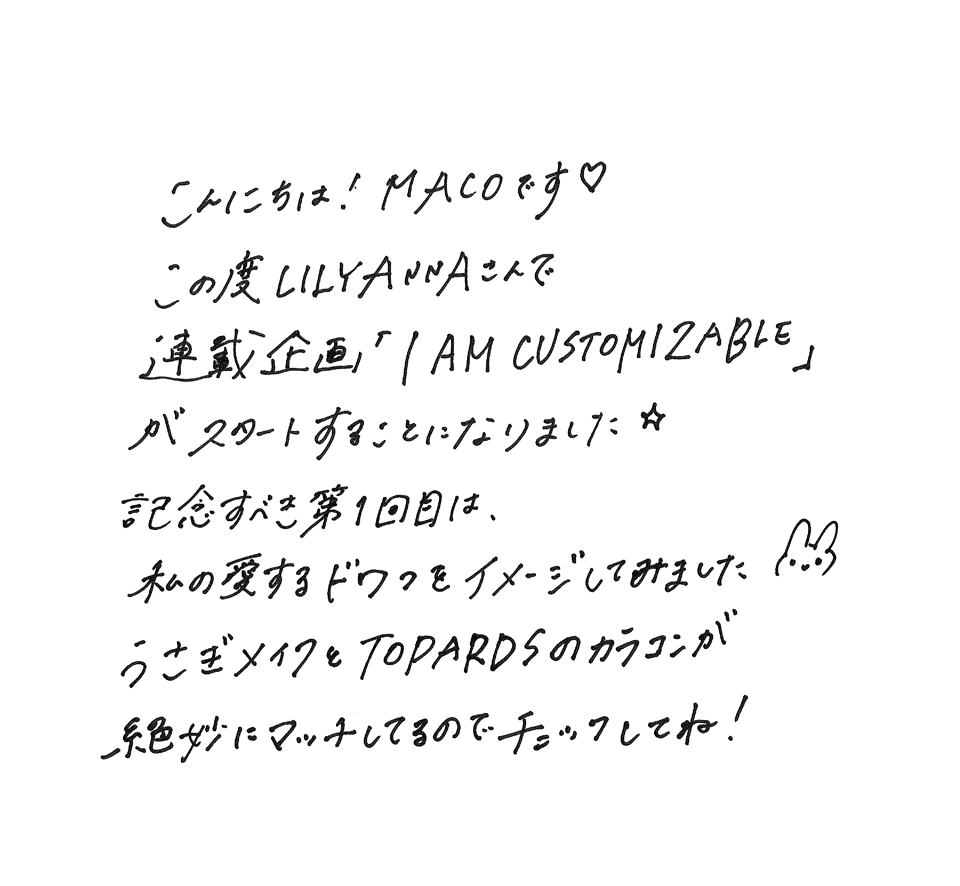 こんにちは！MACOです♡
この度LILYANNAさんで
連載企画「I AM CUSTOMIZABLE」
がスタートすることになりました☆
記念すべき第1回目は、
私の愛するドワフをイメージしてみました
うさぎメイクとTOPARDSのカラコンが
絶妙にマッチしてるのでチェックしてね！